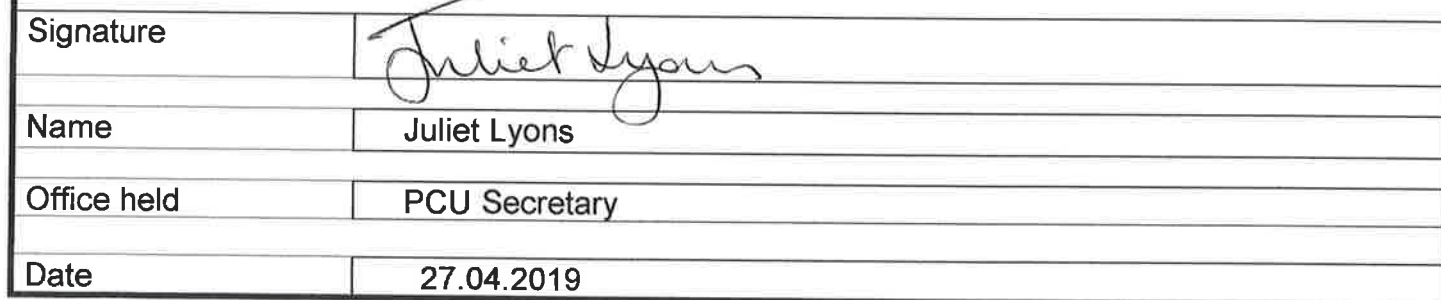 Signature Juliet Lyons
Name Juliet Lyons
Office held PCU Secretary
Date 27.04.2019